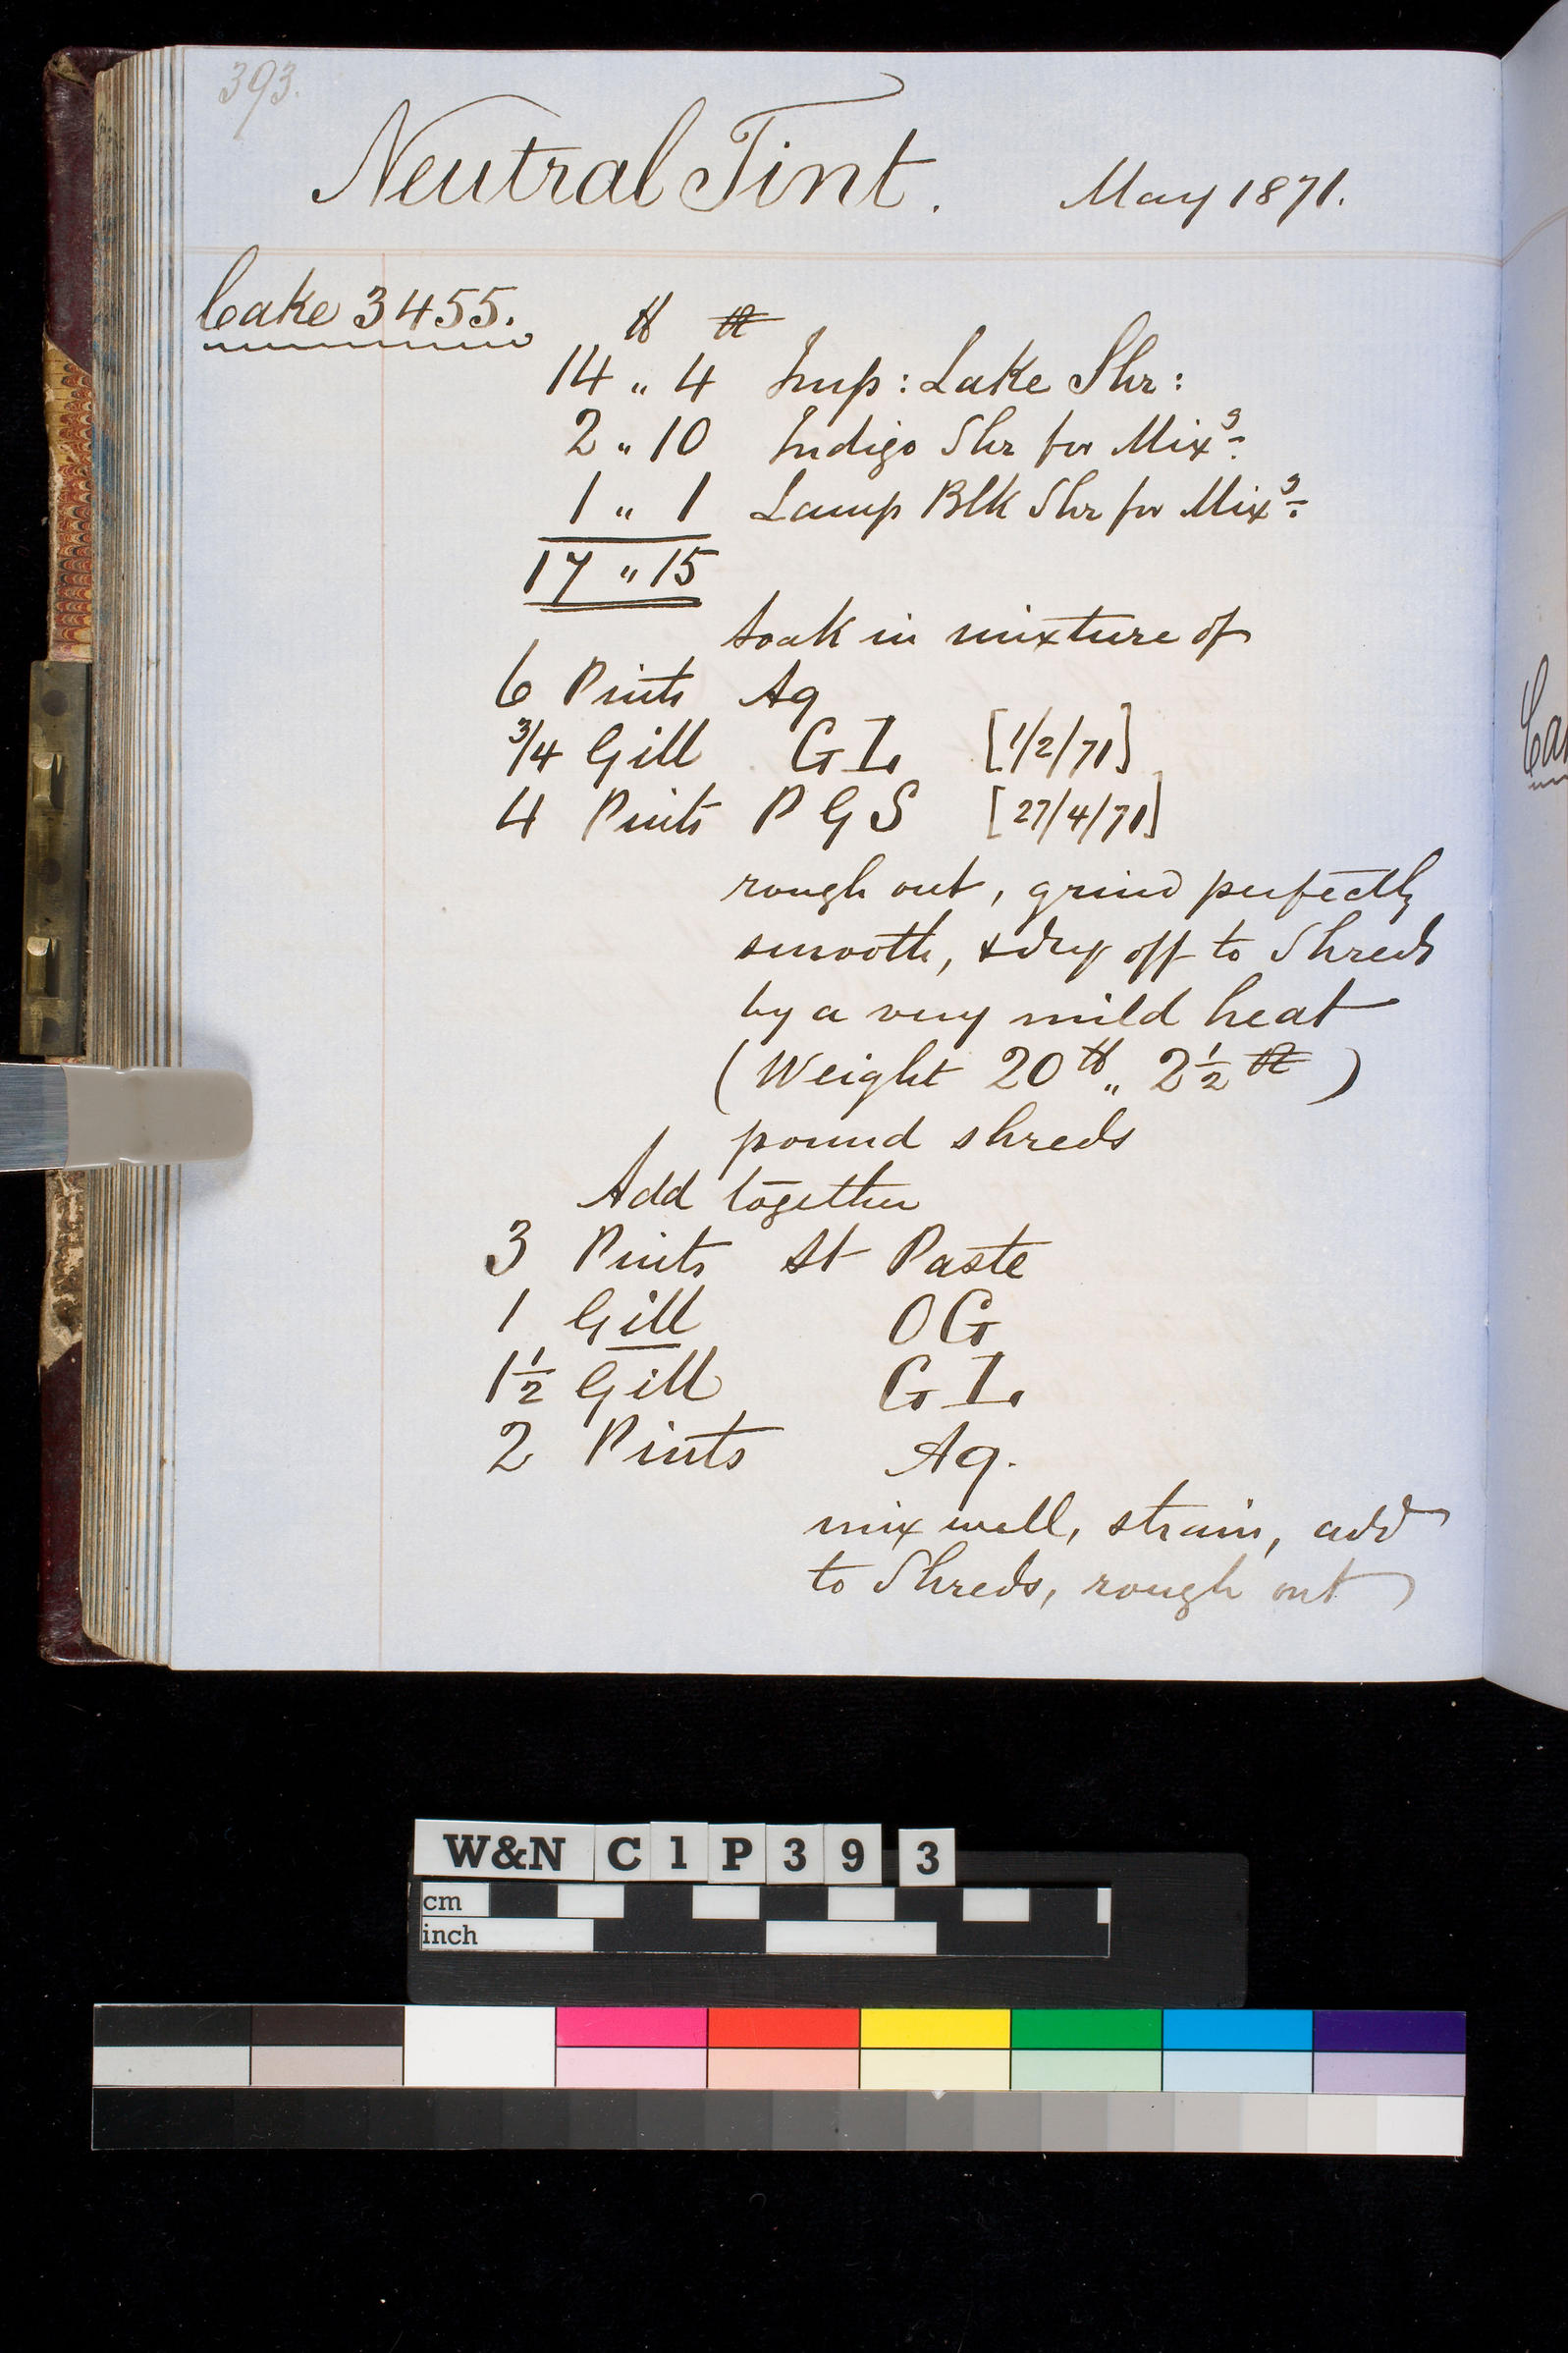 393.
Neutral Tint. May 1871.
Cake 3455.
℔ oz
14 " 4 Imp: Lake Shr:
2 " 10 Indigo Shr for Mixg:
1 " 1 Lamp Blk Shr for Mixg:
17 " 15
soak in mixture of
6 Pints Aq
3/4 Gill GL [1/2/71]
4 Pints P G S [27/4/71]
rough out, grind perfectly
smooth, & dry off to Shreds
by a very mild heat
(Weight 20 ℔ " 2½ oz)
pound shreds
Add together
3 Pints St Paste
1 Gill OG
1½ Gill GL
2 Pints Aq.
mix well, strain, add
to Shreds, rough out
W&N C1P393
cm
inch